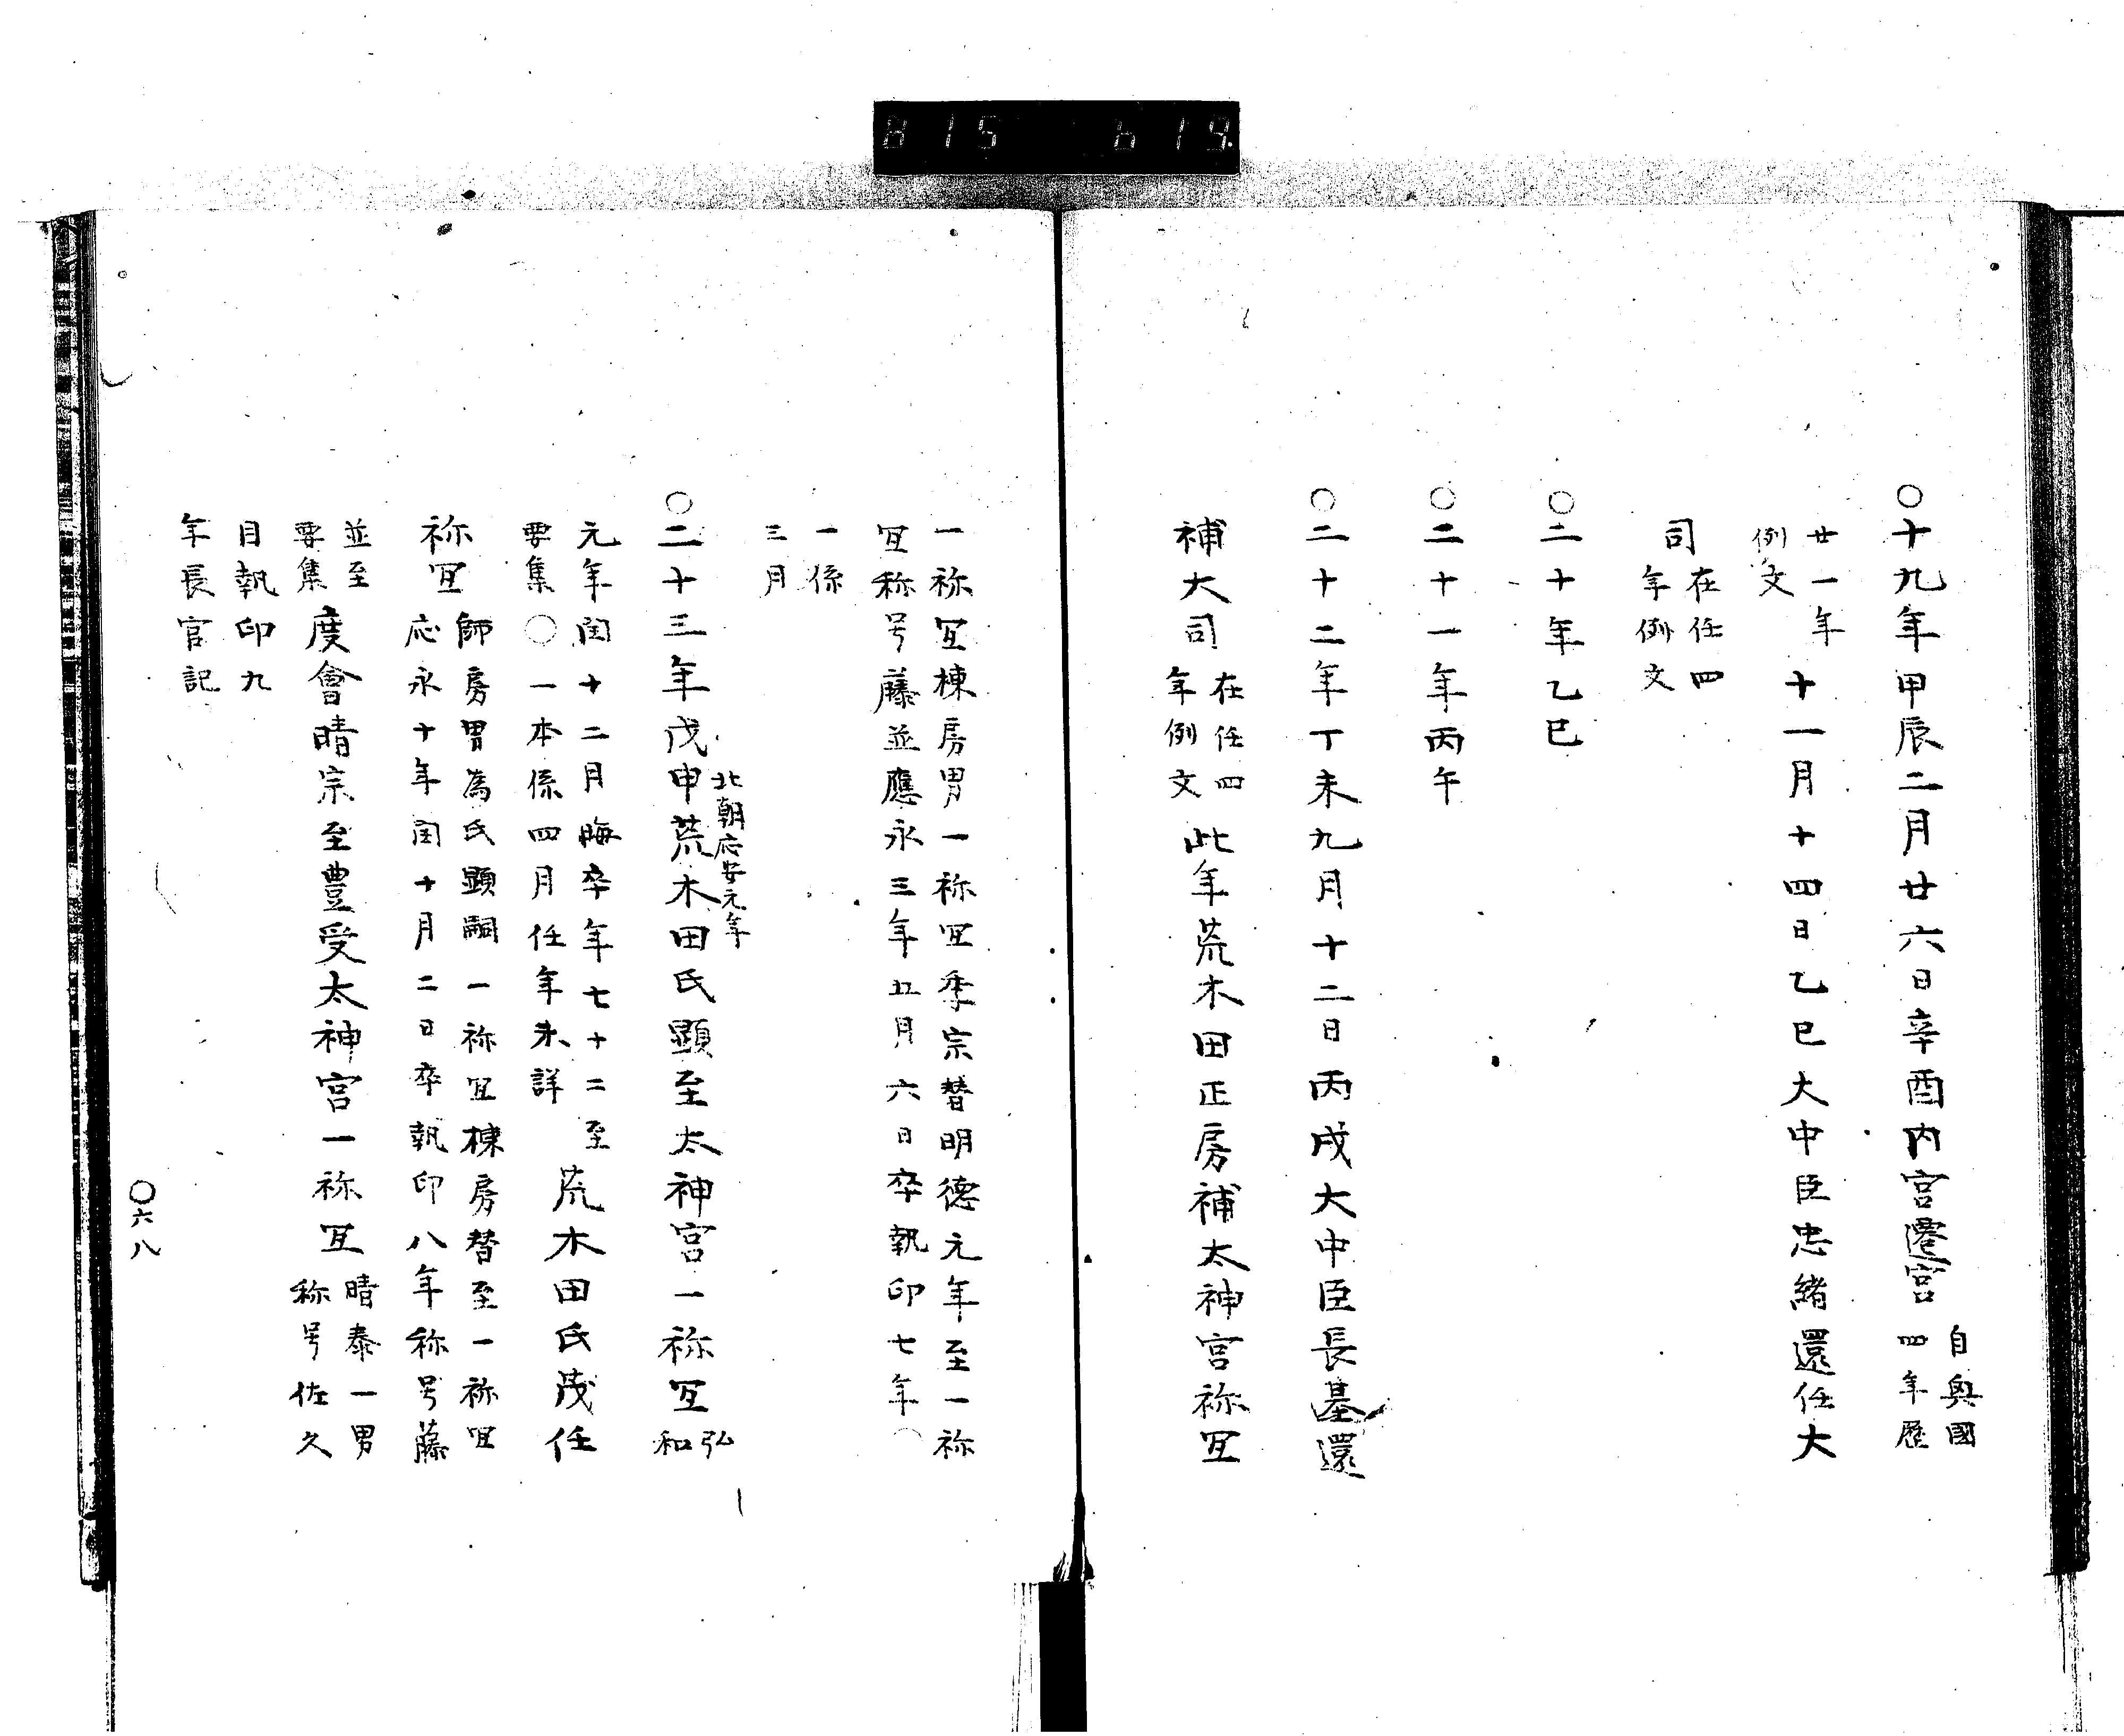 815 619
〇十九年甲辰二月廿六日辛酉内宮遷宮 自興國
四年歴
廿一年
例文
十一月十四日乙巳大中臣忠緒還任大
司 在任四
年例文
〇二十年乙巳
〇二十一年丙午
〇二十二年丁未九月十二日丙戌大中臣長基還
補大司 在任四
年例文
此年荒木田正房補太神宮祢宜
一祢宜棟房男一祢宜季宗替明德元年至一祢
宜称号藤並應永三年五月六日卒執印七年〇
一係
三月
北朝応安元年
〇二十三年戊申荒木田氏顕至太神宮一祢宜 弘
和
元年閏十二月晦卒年七十二至
要集〇一本係四月任年未詳
荒木田氏茂任
祢宜 師房男為氏顕嗣一祢宜棟房替至一祢宜
応永十年閏十月二日卒執印八年称号藤
並至
要集
度會晴宗至豊受太神宮一祢宜 晴泰一男
称号佐久
目執印九
年長官記
〇六八